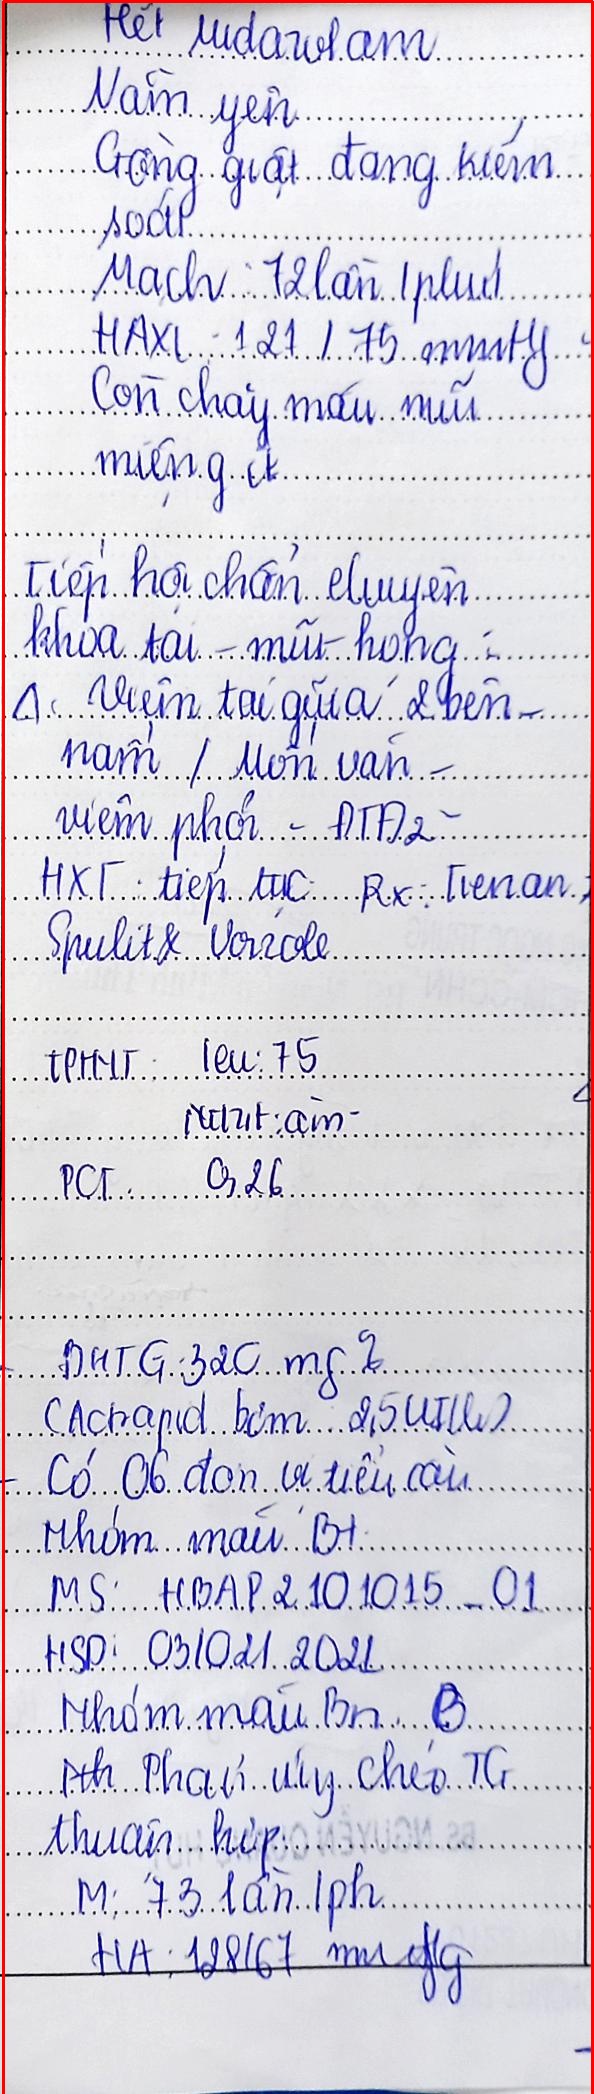 Hết midazolam
Nằm yên
Gồng giật đang kiểm
soát
Mạch: 72 lần / phút
HAXL: 121 / 75 mmHg
Còn chảy máu mũi
miệng ít
Tiếp hội chẩn chuyên
khoa tai - mũi - họng:
Δ: Viêm tai giữa 2 bên -
nấm /
viêm phổi - ĐTĐ2 -
HXT: tiếp tục Rx: Tienam,
Vorzole
TPTNT: leu: 75
Nitrit: âm
PCT: 0,26
- ĐHTG: 320 mg%
(Actrapid bơm 2,5UI/h)
- Có 06 đơn vị tiểu cầu
Nhóm máu B+
MS: HBAP2101015_01
HSD: 03/02/2021
Nhóm máu Bn: B
Phản ứng chéo TG
thuận hợp
M: 73 lần/ph
HA: 128/67 mmHg